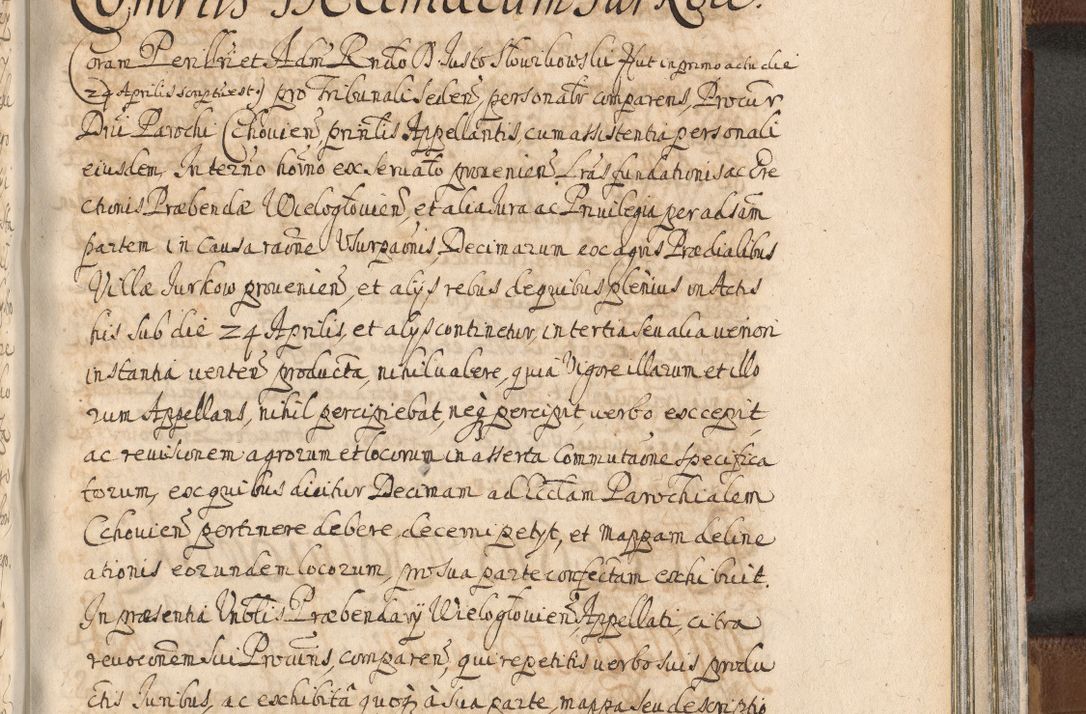 Coram Perillri et Adm Rndo D. Justo Słowikowski /: ut in primo actu die
24 Aprilis scriptu est :/ pro Tribunali Seden, personalr comparens, Procur
Dni Parochi Cchovien, prntis Appellantis, cum assistentia personali
eiusdem, In termo horno ex servato provenien. Lras fundationis ac Ere
ctionis Præbendæ Wielogłovien, et alia Jura ac Privilegia per adsam
partem in Causa raone Usurpaonis Decimarum ex agris Prædialibus
Villæ Jurkow provenien, et alys rebus de quibus plenius in Actis
his sub die 24 Aprilis, et alys continetur, in tertia seu alia veriori
instantia verten producta, nihil valere, quia Vigore illarum et illo
rum Appellans, nihil percipiebat, neq percipit, verbo excepit,
ac revisionem agrorum et locorum in asserta Commutaone specifica
torum, ex quibus dicitur Decimam ad Ecclam Parochialem
Cchovien pertinere debere, decerni petyt, et mappam deline
ationis eorundem locorum, pro sua parte confectam exhibuit.
In præsentia Vnblis Præbendary Wielogłovien, Appellati, citra
revoconem sui Procuris, comparen, qui repetitis verbo suis produ
ctis Juribus, ac exhibitâ quoq à sua parte, mappa seu descriptio